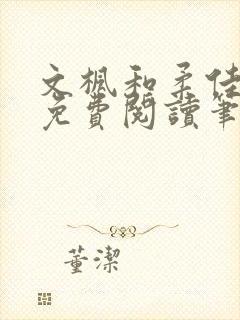 文楓和柔佳
免費閱讀筆
董潔